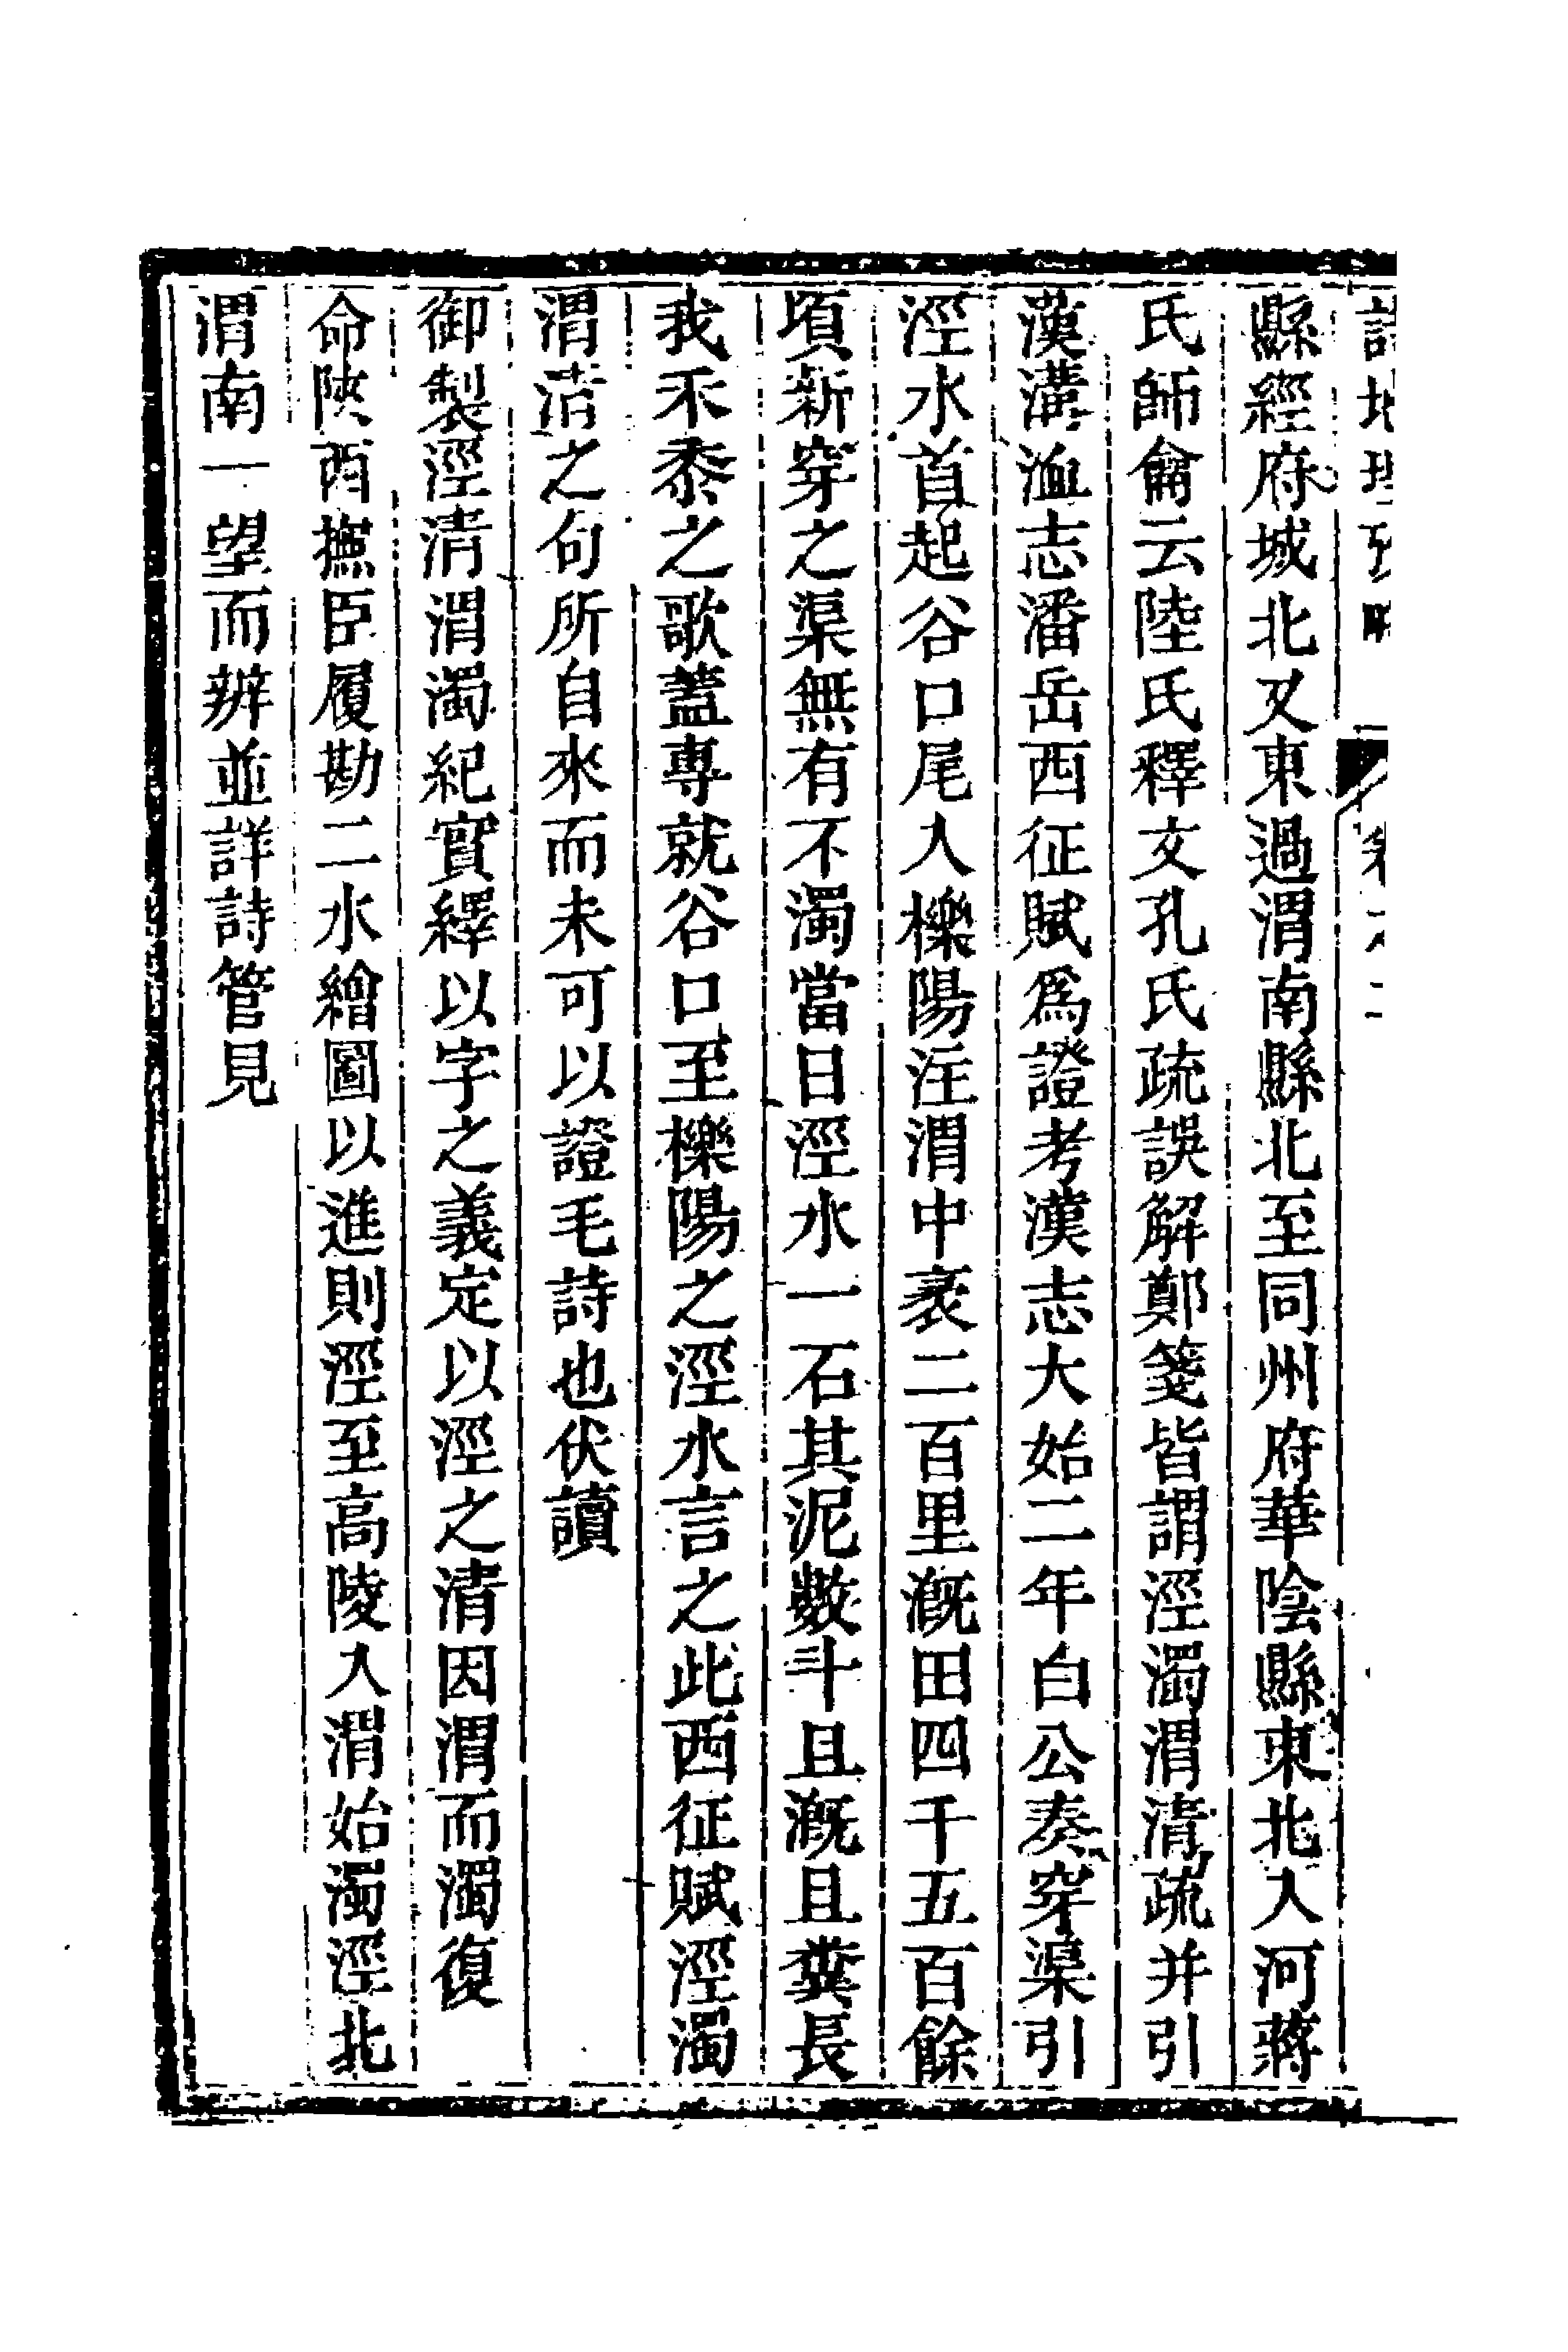 縣經府城北又東過渭南縣北至同州府華陰縣東北入河蔣
氏師龠云陸氏釋文孔氏疏誤解鄭箋皆謂涇濁渭清疏并引
漢溝洫志潘岳西征賦爲證考漢志大始二年白公奏穿渠引
涇水首起谷口尾入櫟陽注渭中袤二百里溉田四千五百餘
頃新穿之渠無有不濁當日涇水一石其泥數斗且溉且糞長
我禾黍之歌蓋專就谷口至櫟陽之涇水言之此西征賦涇濁
渭清之句所自來而未可以證毛詩也伏讀
御製涇清渭濁紀實繹以字之義定以涇之清因渭而濁復
命陝西撫臣履勘二水繪圖以進則涇至高陵入渭始濁涇北
渭南一望而辨並詳詩管見